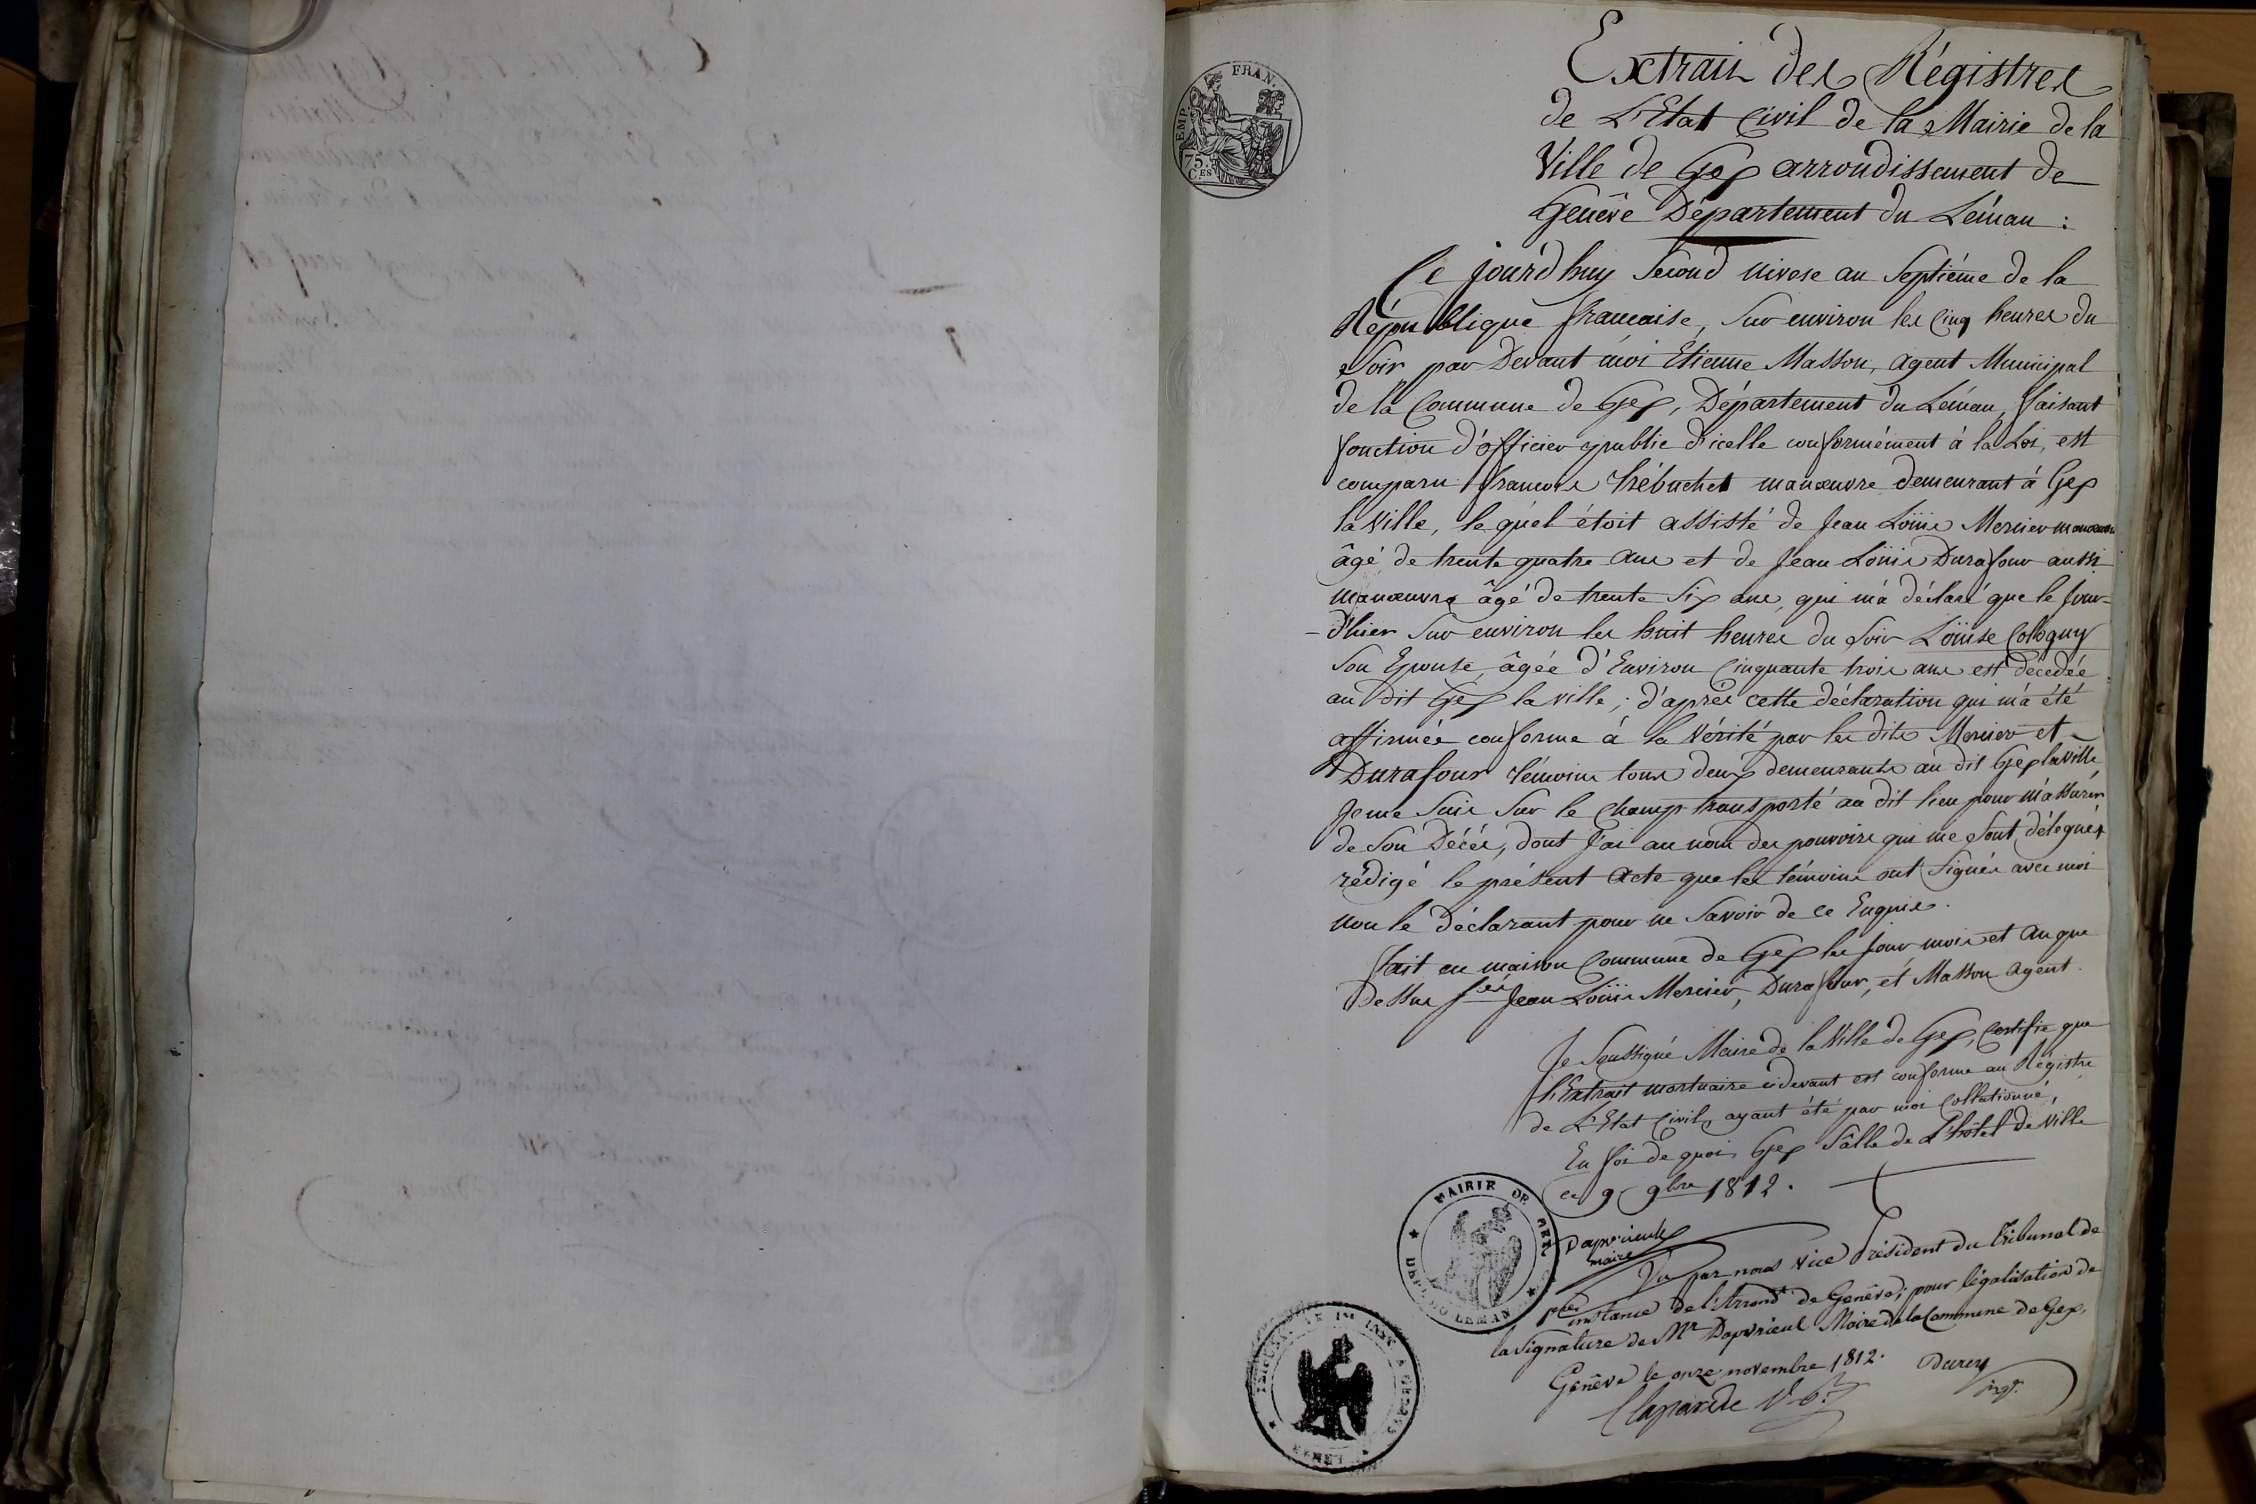 EMP. FRAN.
75.
C.ES
Extrait des Régistres
de L'Etat Civil de la Mairie de la
Ville de Gex arrondissement de
Genêve Département du Léman :
Ce jourd'huy second nivose an septiéme de la
République francaise, sur environ les cinq heures du
soir par devant moi Etienne Masson, agent Municipal
de la Commune de Gex, Département du Léman, faisant
fonction d'officier public d'icelle conformément à la Loi, est
comparu francois Trébuchet manœuvre demeurant à Gex
la ville, le quel étoit assisté de Jean Loüis Mercier manœuvre
âgé de trente quatre ans et de Jean Loüis Durafour aussi
manœuvre âgé de trente six ans, qui m'a déclaré que le jour-
-d'hier sur environ les huit heures du soir Loüise Collogny
son Epouse, âgée d'Environ cinquante trois ans est décédée
au dit Gex la ville ; d'après cette déclaration qui m'a été
affirmée conforme à la vérité par les dits Mercier et
Durafour témoins tous deux demeurants au dit Gex la ville
Je me suis sur le champ transporté au dit lieu pour m'assurer
de son Décés, dont J'ai au nom des pouvoirs qui me sont délegués
rédigé le présent acte que les témoins ont signés avec moi
non le déclarant pour ne savoir de ce Enquis.
fait en maison Commune de Gex les jour mois et an que
dessus s.és Jean Loüis Mercier, Durafour, et Masson agent.
Je Soussigné Maire de la Ville de Gex, certifie que
l'Extrait mortuaire cidevant est conforme au Régistre
de L'Etat Civil, ayant été par moi collationné,
En foi de quoi, Gex Sâlle de L'hôtel de ville
ce 9 9bre 1812.
MAIRIE DE GEX
DEP. DU LEMAN
maire
Vu par nous vice Président du Tribunal de
instance de l'Arrond.t de Genêve, pour légalisation de
la signature de Mr Maire de la Commune de Gex,
Genêve le onze novembre 1812.
Claparède V.P.